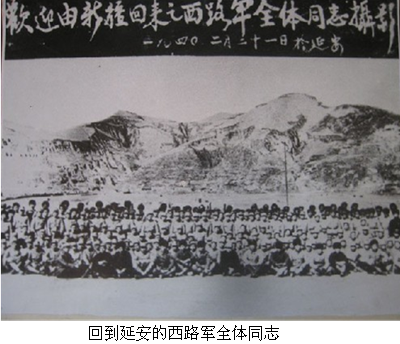 歡迎由新疆回来之西路军全体同志攝影
一九四〇 二月二十一日 於延安
回到延安的西路军全体同志